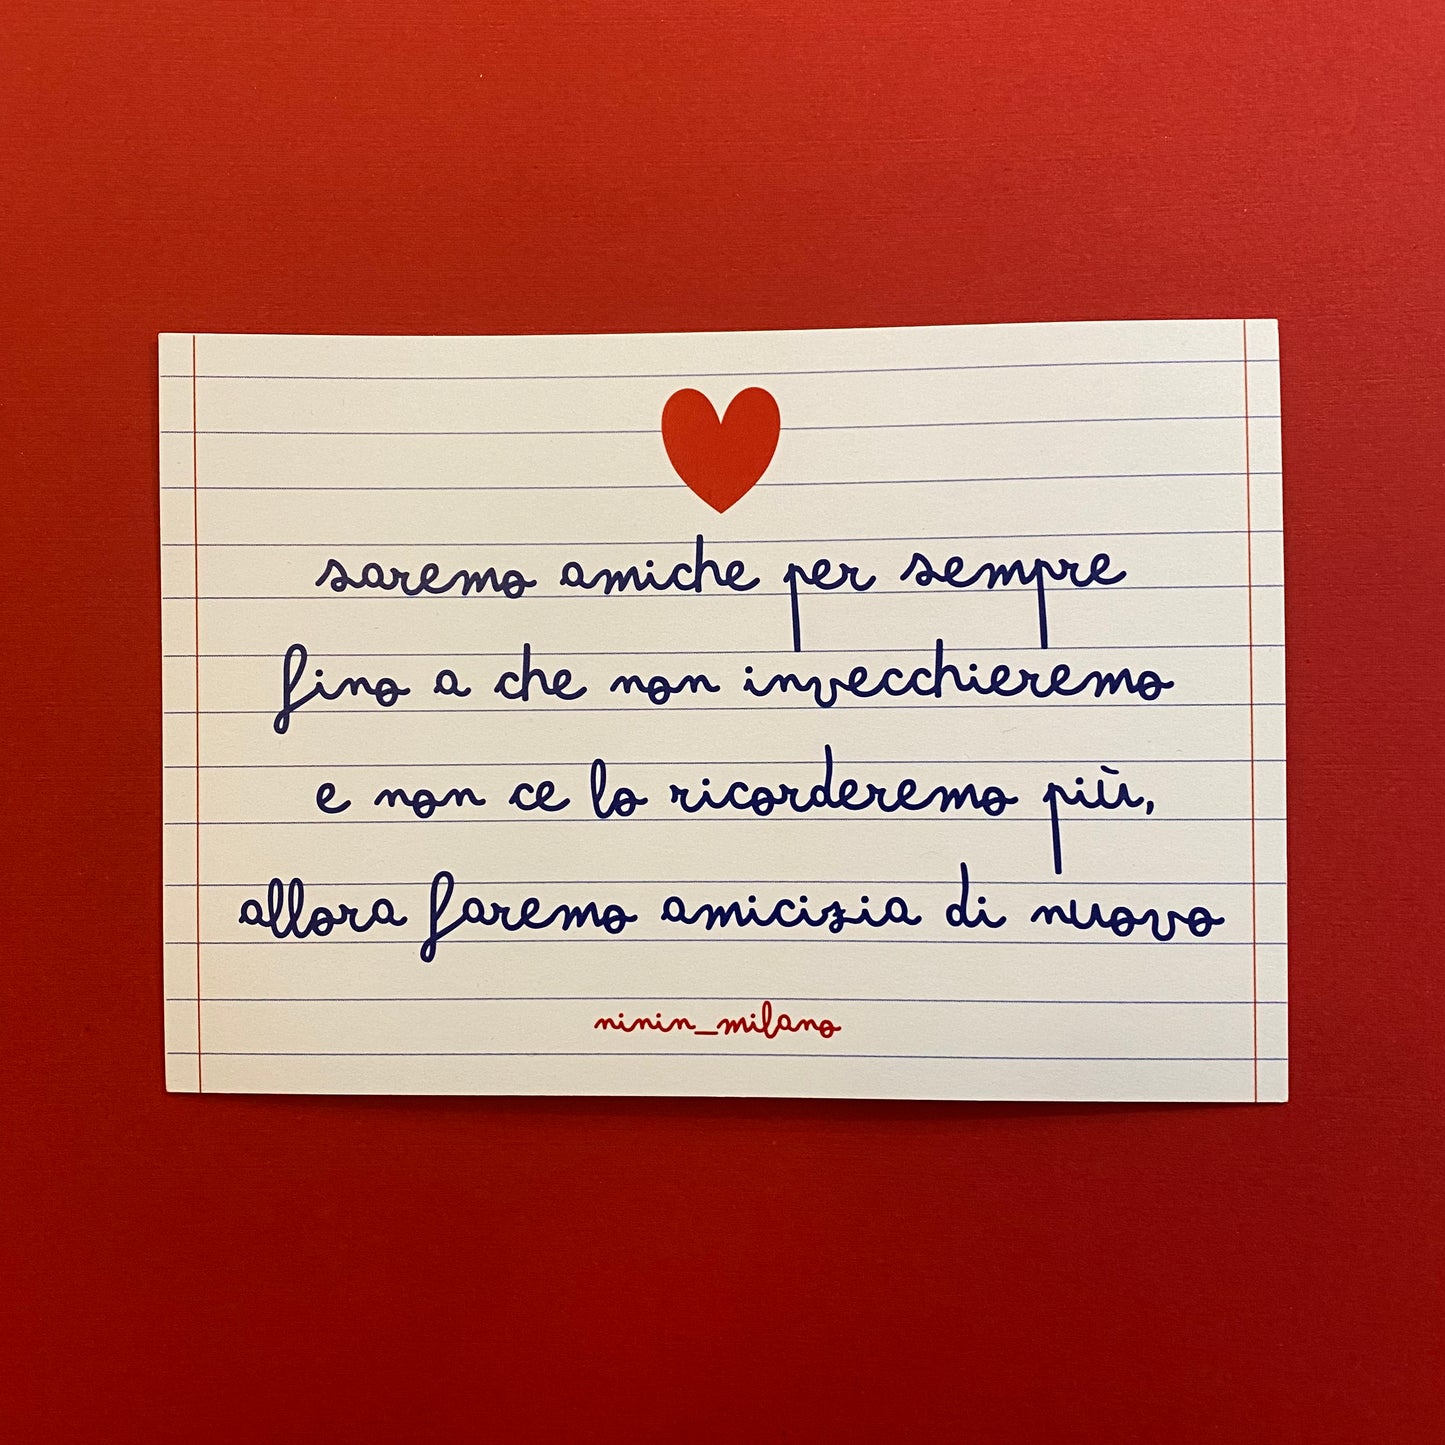 saremo amiche per sempre
fino a che non invecchieremo
e non ce lo ricorderemo più,
allora faremo amicizia di nuovo
ninin_milano